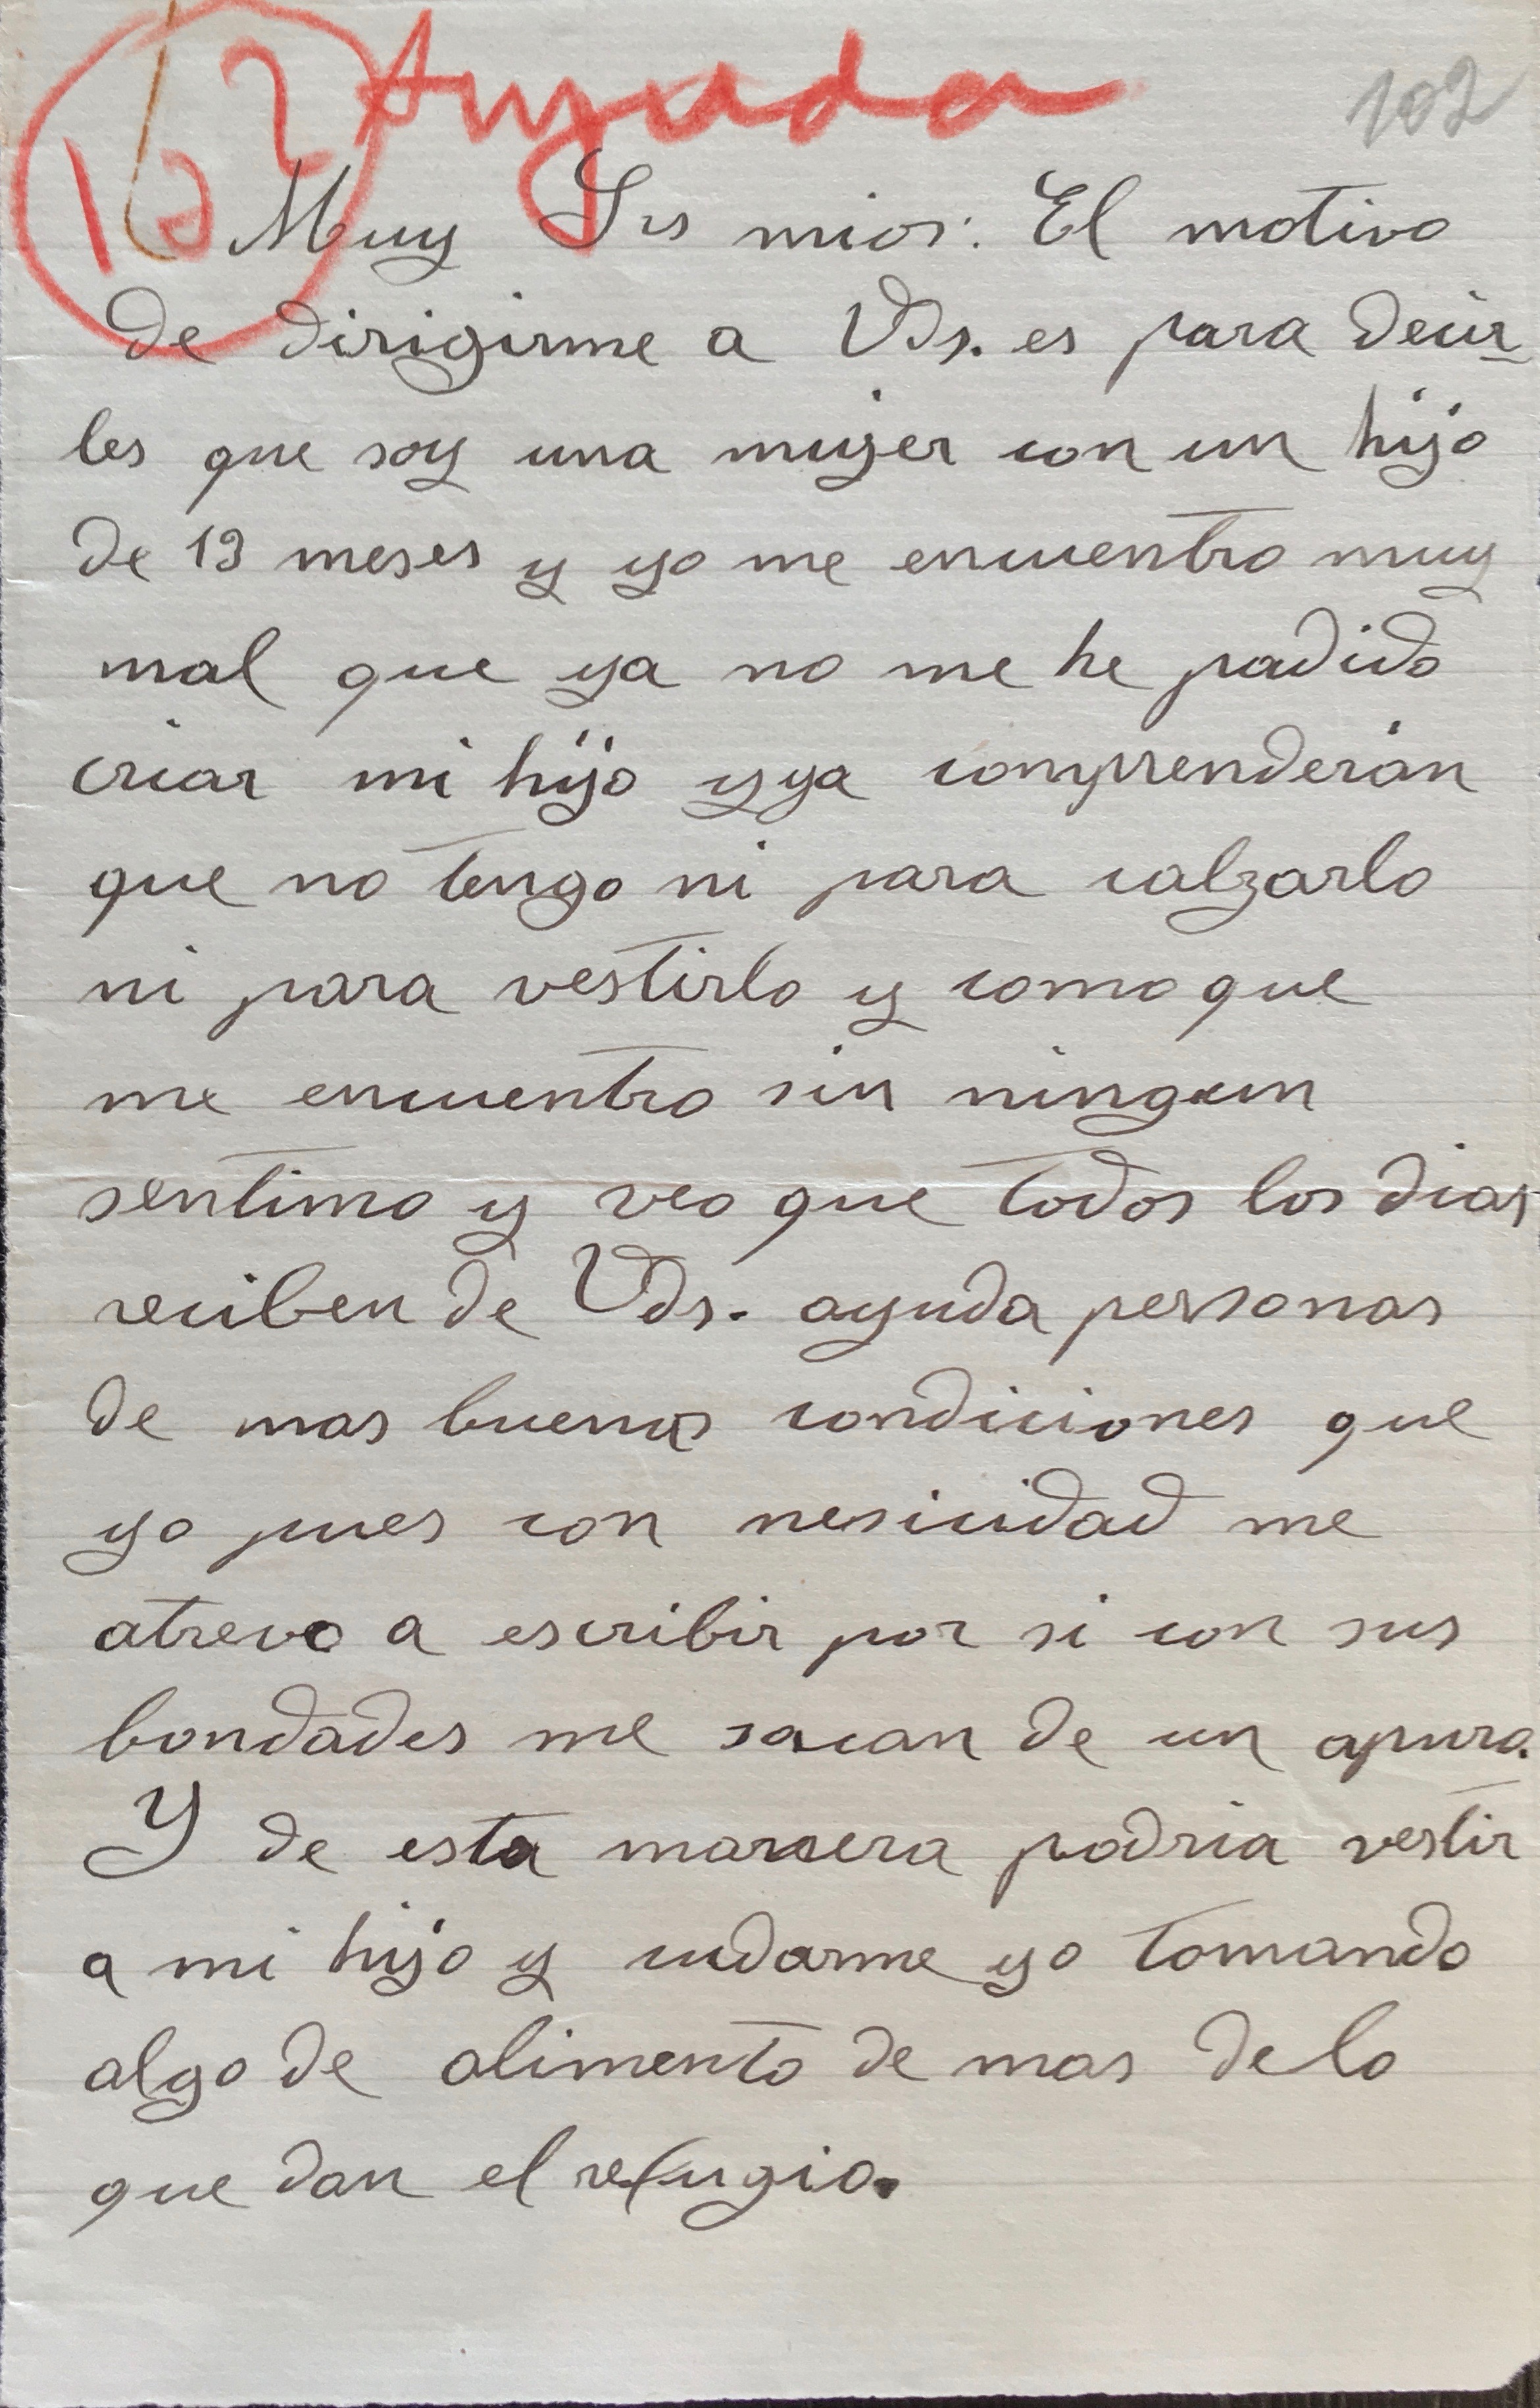 102 Ayuda
102
Muy Srs mios: El motivo
de dirigirme a Vds. es para decir-
les que soy una mujer con un hijo
de 13 meses y yo me encuentro muy
mal que ya no me he podido
criar mi hijo y ya comprenderán
que no tengo ni para calzarlo
ni para vestirlo y como que
me encuentro sin ningun
sentimo y veo que todos los dias
reciben de Vds. ayuda personas
de mas buenas condiciones que
yo pues con nesicidad me
atrevo a escribir por si con sus
bondades me sacan de un apuro.
Y de esta manera podria vestir
a mi hijo y cudarme yo tomando
algo de alimento de mas de lo
que dan el refugio.